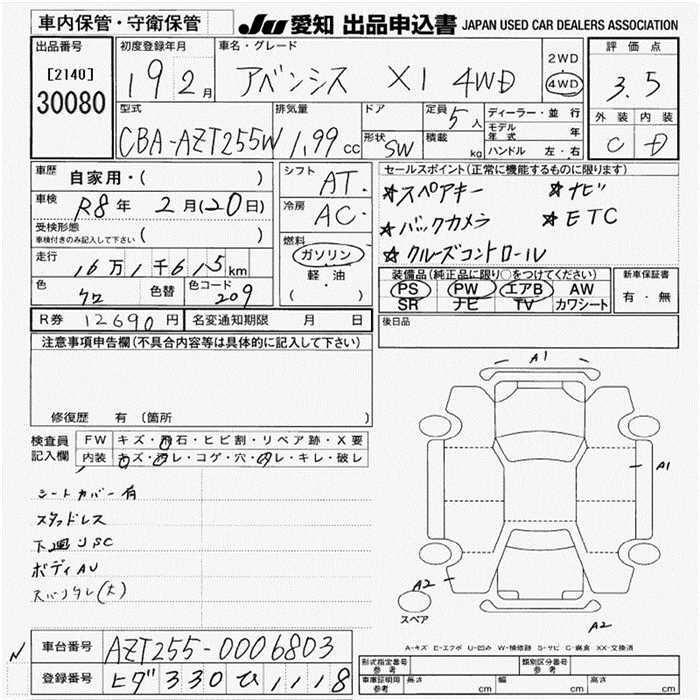 車内保管・守衛保管
JU 愛知 出品申込書 JAPAN USED CAR DEALERS ASSOCIATION
出品番号
[2140]
30080
初度登録年月
19 2月
車名・グレード
アベンシス X1 4WD
2WD
4WD
評価点
3.5
外装 内装
C D
型式
CBA-AZT255W
排気量
1.99cc
ドア
形状 SW
定員 5人
積載 kg
ディーラー・並行
モデル年式 年
ハンドル 左・右
車歴 自家用・( )
車検 R8年 2月(20日)
受検形態
車検付きのみ記入して下さい ( )
走行 16万1千615km
色 クロ 色替 色コード 209
シフト AT.
冷房 AC.
燃料
ガソリン
軽・油
( ・ )
セールスポイント(正常に機能するものに限ります)
★スペアキー ★ナビ
★バックカメラ ★ETC
★クルーズコントロール
装備品(純正品に限り○をつけてください)
PS PW エアB AW
SR ナビ TV カワシート
新車保証書
有・無
R券 12690円 名変通知期限 月 日
後日品
注意事項申告欄(不具合内容等は具体的に記入して下さい)
修復歴 有 〔箇所
検査員記入欄
FW キズ・飛石・ヒビ割・リペア跡・X要
内装 キズ・汚レ・コゲ・穴・スレ・キレ・破レ
シートカバー有
スタッドレス
下廻りSC
ボディAU
A1
A1
A2
スペア
A2
A-キズ E-エクボ U-凹み W-補修跡 S-サビ C-腐食 XX-交換済
車台番号 AZT255-0006803
登録番号 330 ひ 1118
形式指定番号 参考
類別区分番号 参考
車庫証明用 参考 長さ cm 幅 cm 高さ cm